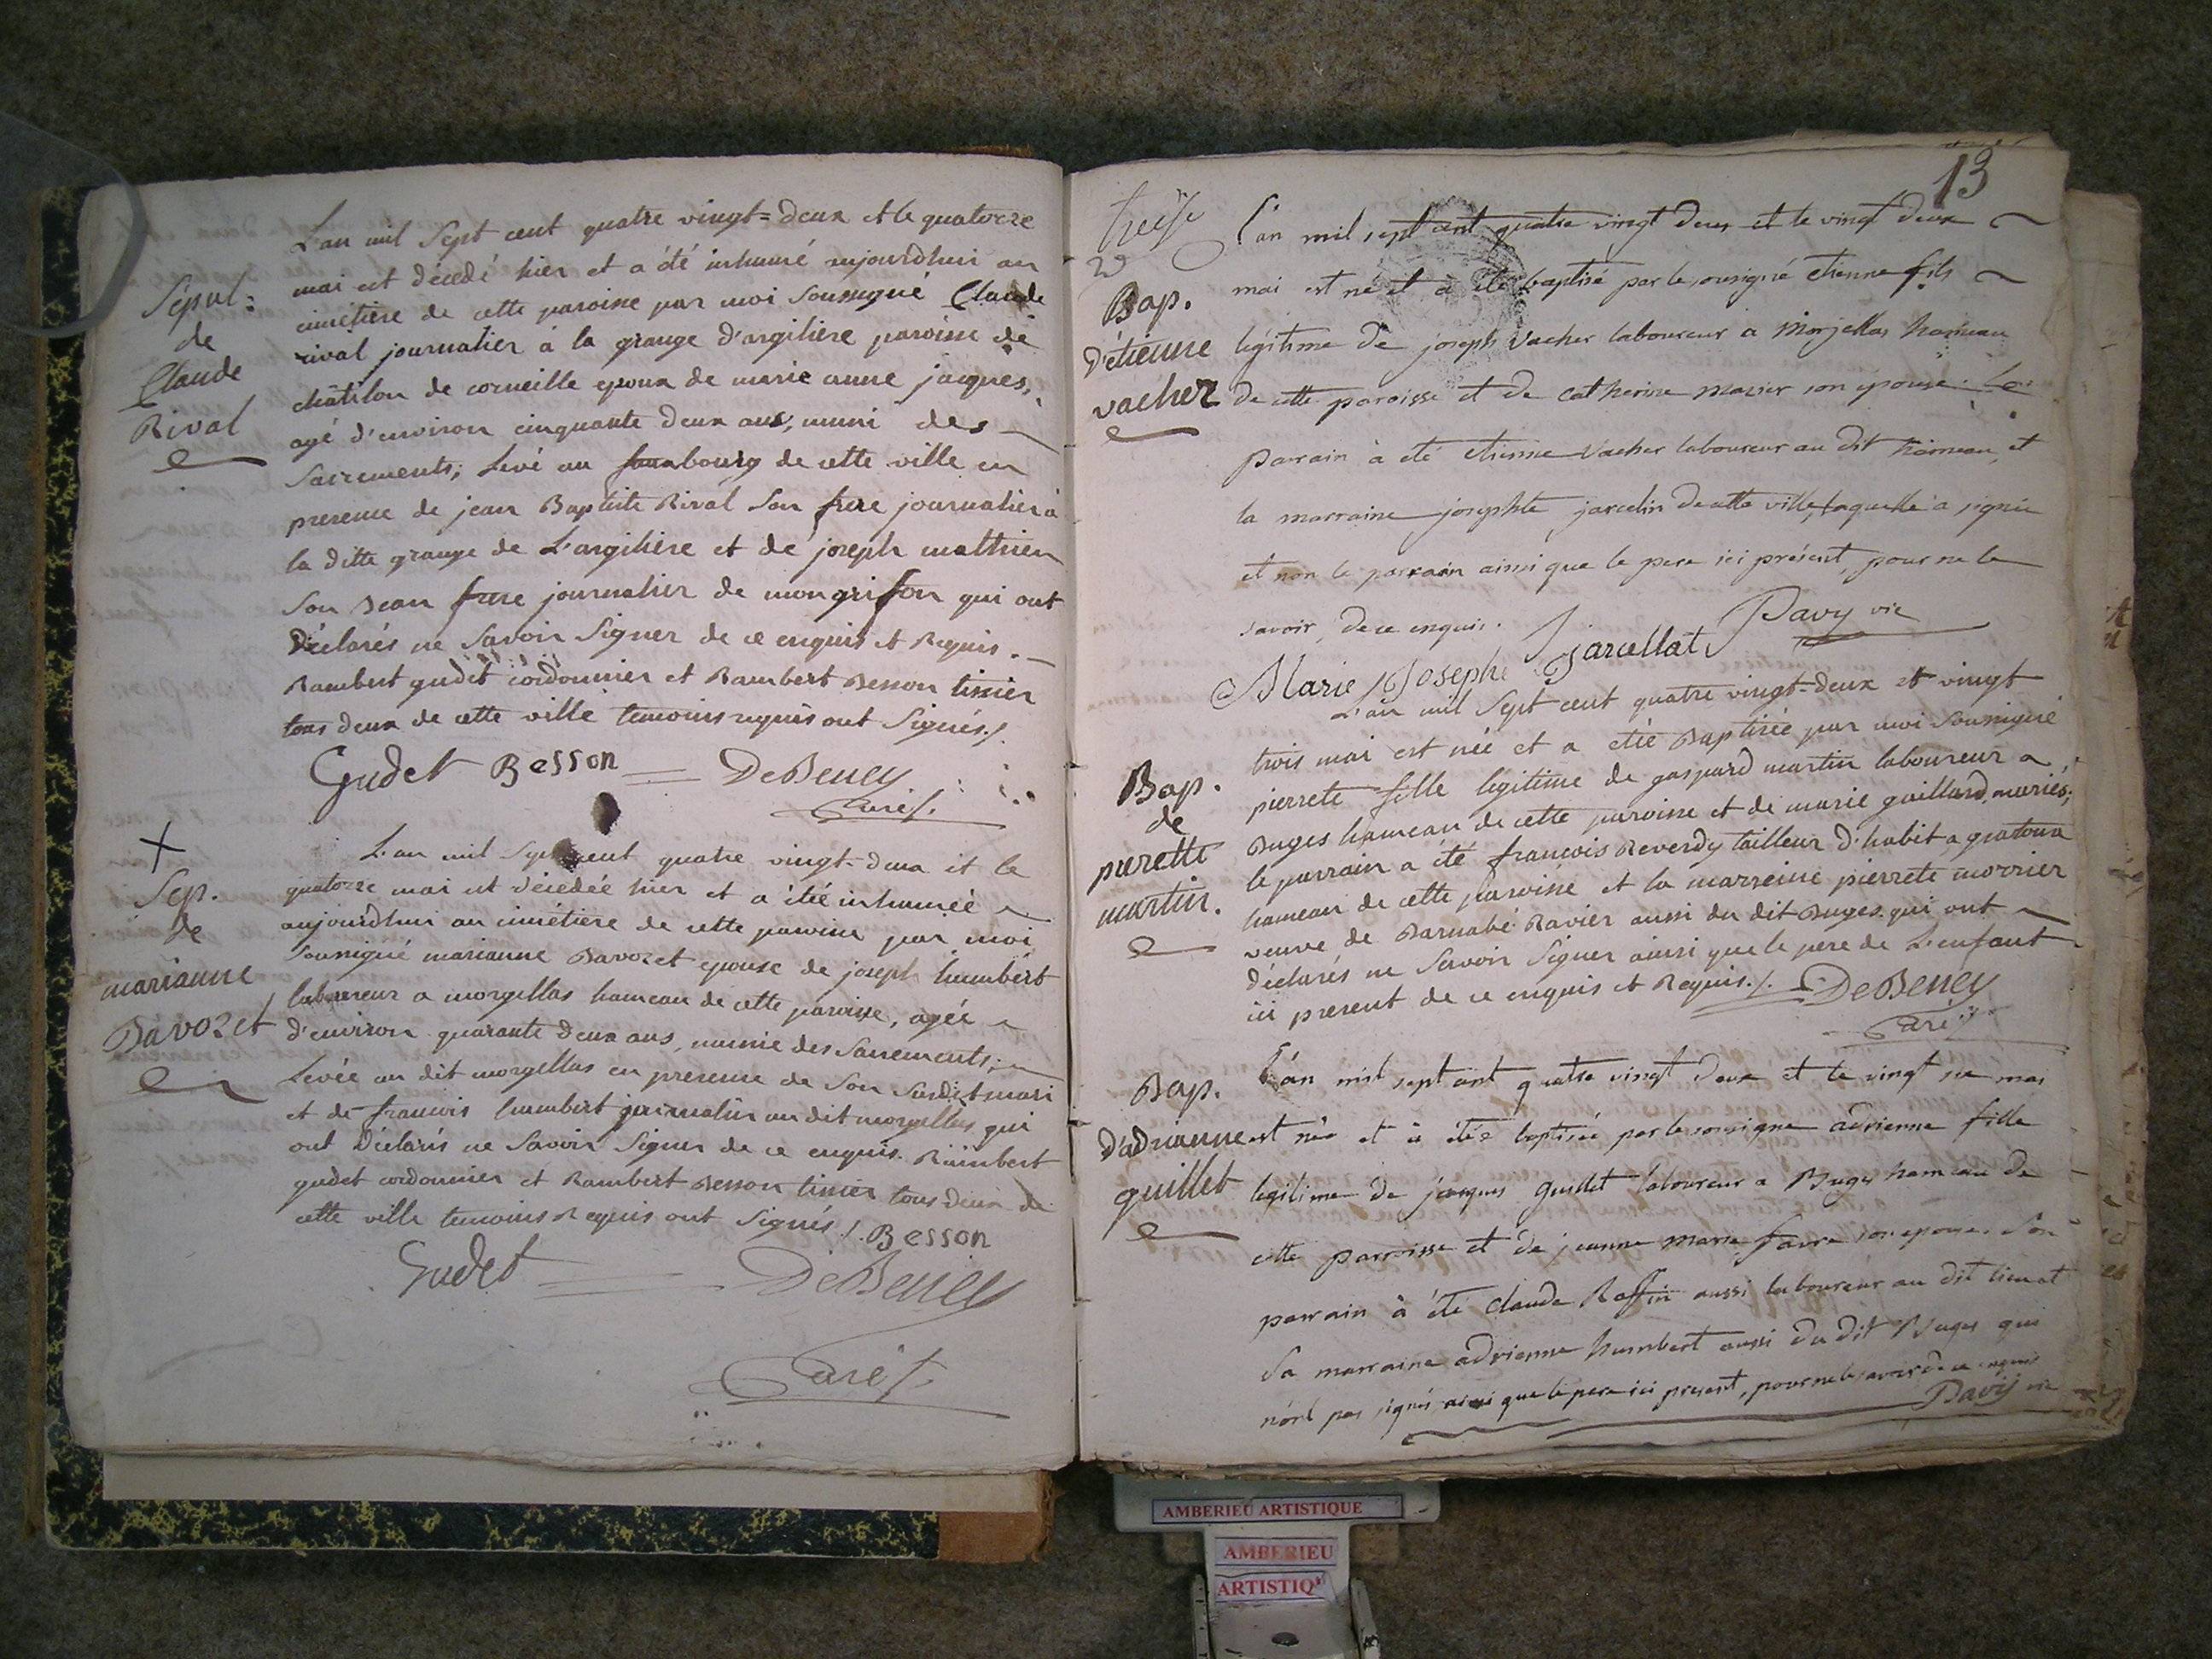 Sépul:
de
Claude
Rival
L'an mil Sept cent quatre vingt=deux et le quatorze
mai est décedé hier et a été inhumé aujourdhui au
cimétiere de cette paroisse par moi Soussigné Claude
rival journalier à la grange d'argiliere paroisse de
châtilon de corneille epoux de marie anne jacques,
agé d'environ cinquante deux ans, muni des
Sacrements; Levé au fauxbourg de cette ville en
presence de jean Baptiste Rival Son frere journalier à
la ditte grange de L'argiliere et de joseph mathieu
Son Beau frere journalier de mongriffon qui ont
déclarés ne Savoir Signer de ce enquis et Requis.
Rambert gudet cordonnier et Rambert Besson tissier
tous deux de cette ville temoins requis ont Signés./.
Gudet Besson DeBeney
Curé/.
Sep.
de
marianne
Bavozet
L'an mil Sept cent quatre vingt-deux et le
quatorze mai est décedée hier et a étée inhumée
aujourdhui au cimétiere de cette paroisse par moi
Soussigné marianne Bavozet epouse de joseph humbert
laboureur a morgellas hameau de cette paroisse, agée
d'environ quarante deux ans, munie des Sacrements;
Levée au dit morgellas en presence de Son Susdit mari
et de francois humbert journalier au dit morgellas qui
ont déclarés ne Savoir Signer de ce enquis. Rambert
gudet cordonnier et Rambert Besson tissier tous deux de
cette ville temoins Requis ont Signés./. Besson
Gudet DeBeney
Curé/.
13
treize
Bap.
d'étienne
vacher
L'an mil sept cent quatre vingt deux et le vingt deux
mai est né et à été baptisé par le sousigné etienne fils
légitime de joseph Vacher laboureur a Morjellas hameau
de cette paroisse et de Catherine masier son épouse. Le
parrain à été etienne Vacher laboureur au dit hameau, et
la marraine josephte jarcelin de cette ville, laquelle à signée
et non le parrain ainsi que le pere ici présent, pour ne le
savoir, de ce enquis.
Pavy vic
Marie Josephe Jarcellat
Bap.
de
pierette
martin.
L'an mil Sept cent quatre vingt-deux et vingt
trois mai est née et a étée Baptisée par moi Soussigné
pierrete fille legitime de gaspard martin laboureur a
Buges hameau de cette paroisse et de marie gaillard, mariés;
le parrain a été francois Reverdy tailleur d'habit a gratoux
hameau de cette paroisse et la marreine pierrete morrier
veuve de Barnabé Ravier aussi du dit Buges qui ont
déclarés ne Savoir Signer ainsi que le pere de L'enfant
ici present de ce enquis et Requis./. DeBeney
Curé/.
Bap.
d'adrianne
guillet
L'an mil sept cent quatre vingt deux et le vingt six mai
est née et à étée baptisée par le sousigné adrienne fille
legitime de jacques guillet laboureur a Buges hameau de
cette parroisse et de jeanne marie favre son epouse. Son
parrain à été Claude Raffin aussi laboureur au dit lieu et
Sa marraine adrienne humbert aussi du dit Buges qui
n'ont pas signés, ainsi que le pere ici present, pour ne le savoir de ce enquis
Pavy vic
AMBERIEU ARTISTIQUE
AMBERIEU
ARTISTIQ